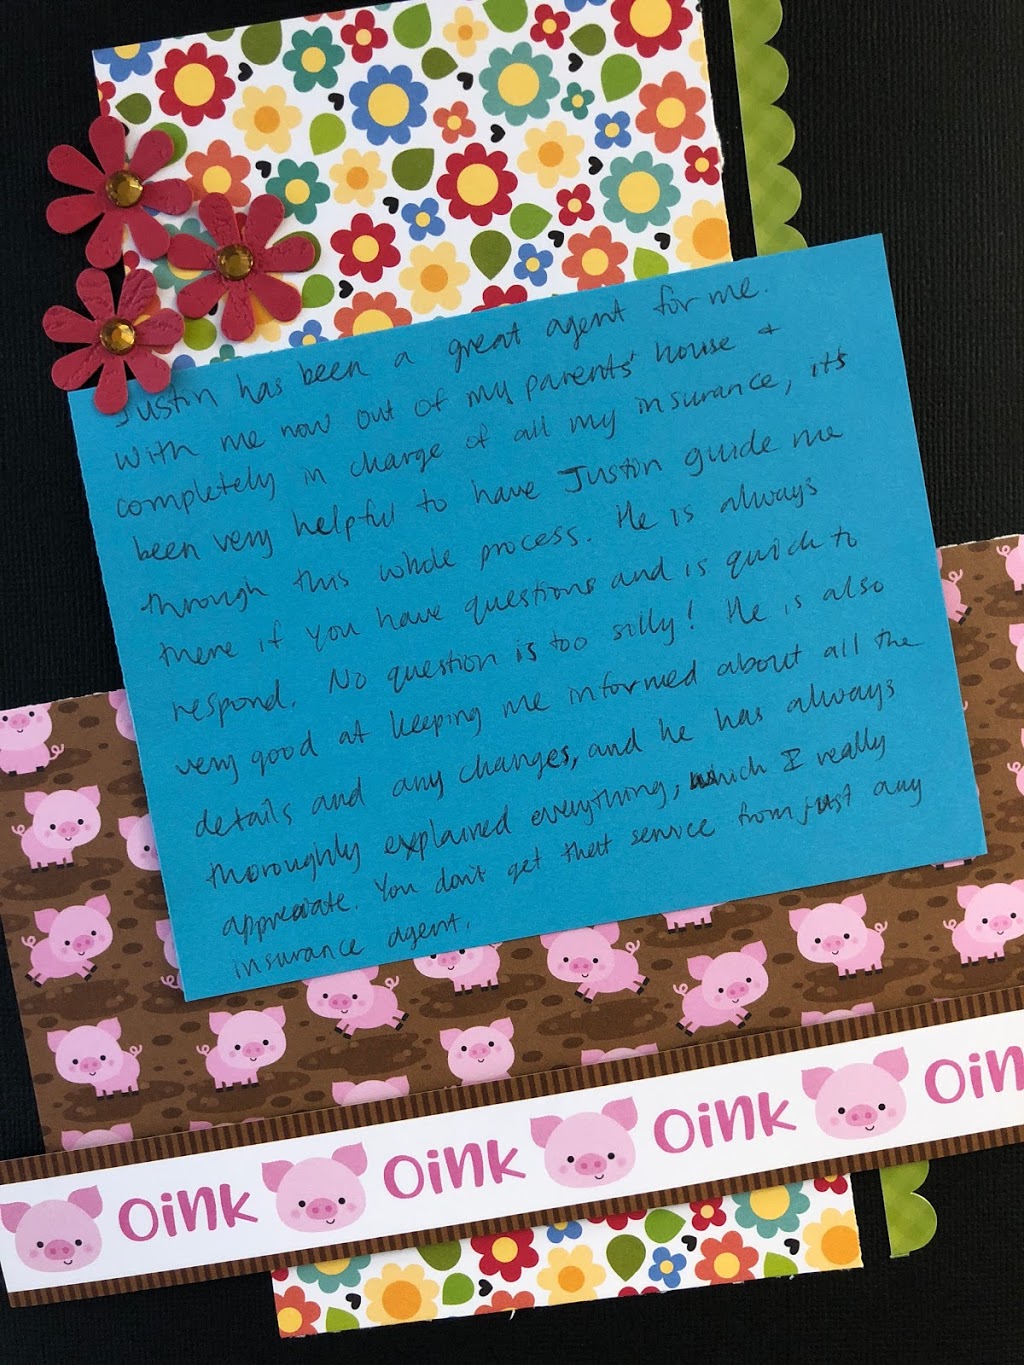 Justin has been a great agent for me.
With me now out of my parents' house +
completely in charge of all my insurance, its
been very helpful to have Justin guide me
through this whole process. He is always
there if you have questions and is quick to
respond. No question is too silly! He is also
very good at keeping me informed about all the
details and any changes, and he has always
thoroughly explained everything, which I really
appreciate. You don't get that service from just any
insurance agent.
oink oink oink oin